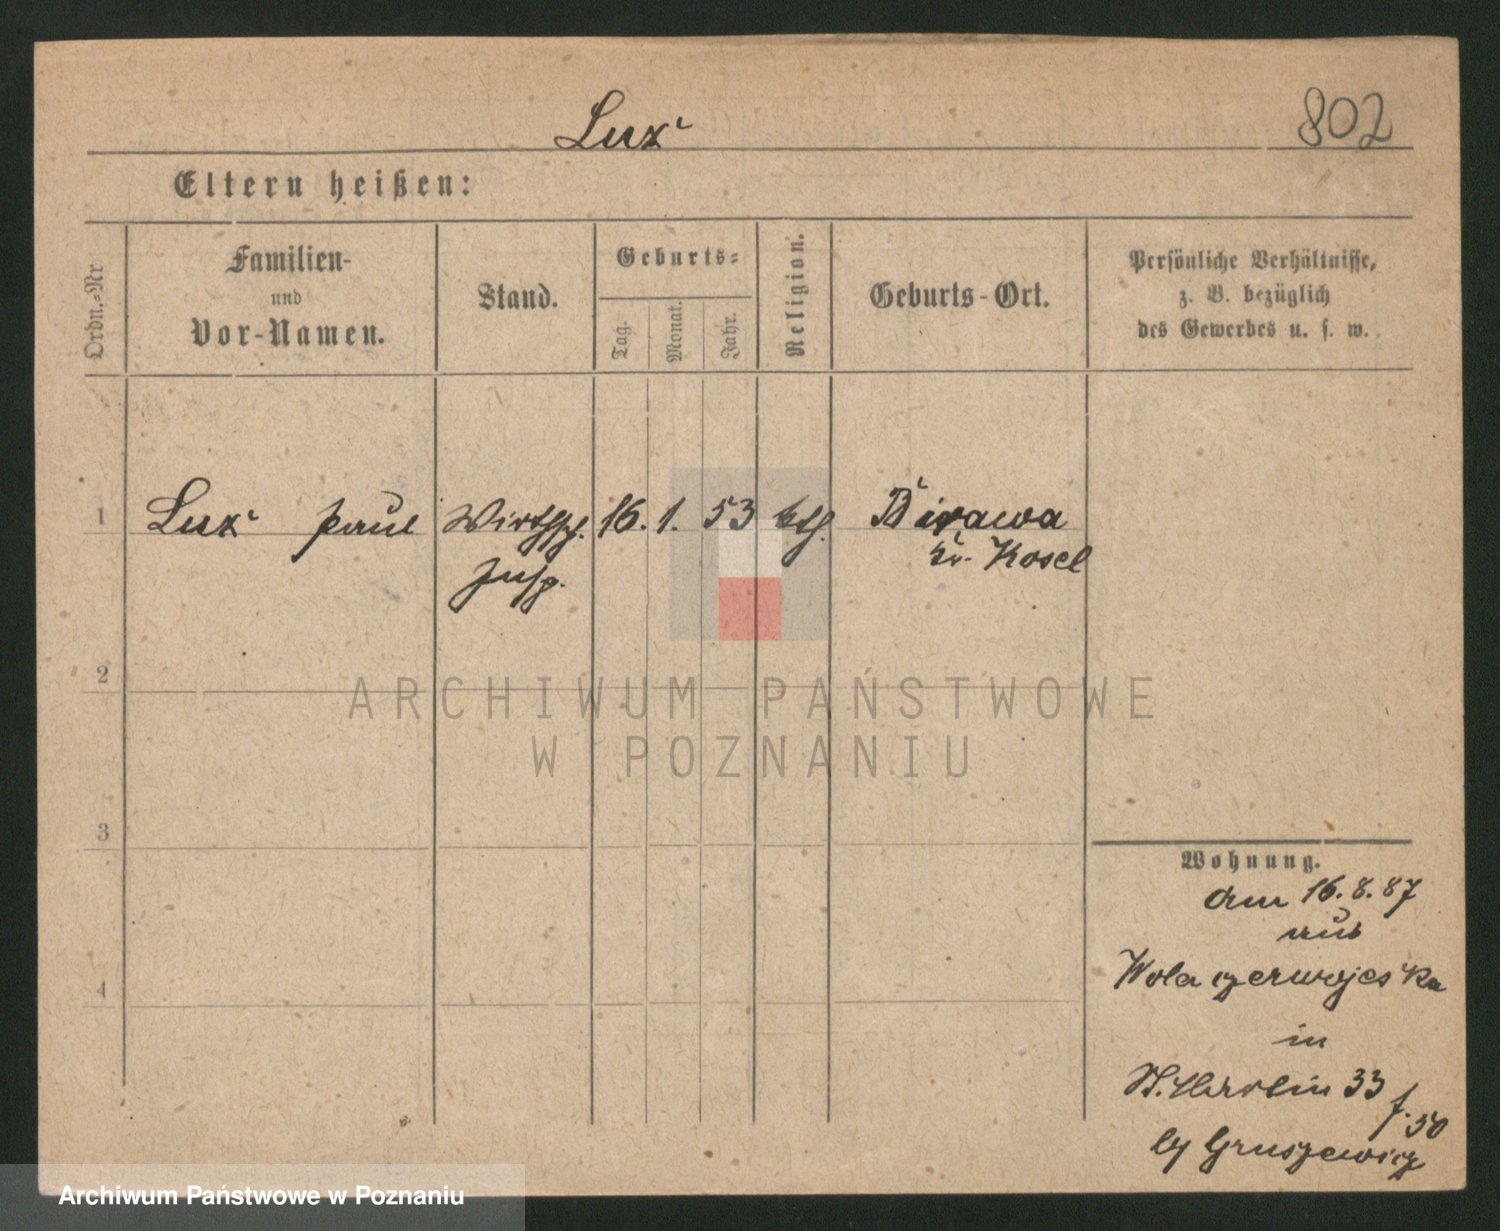 Lux
802
Eltern heißen:
Ordn.-Nr
Familien-
und
Vor-Namen.
Stand.
Geburts-
Tag.
Monat.
Jahr.
Religion.
Geburts-Ort.
Persönliche Verhältnisse,
z. B. bezüglich
des Gewerbes u. s. w.
1 Lux Paul Wirthsch. 16. 1. 53 kth. Birawa
Insp. Kr. Kosel
2
3
4
Wohnung.
am 16.8.87
aus
Wola
in
St. Martin 33
f. 50
by Gruszewicz
ARCHIWUM PAŃSTWOWE
W POZNANIU
Archiwum Państwowe w Poznaniu